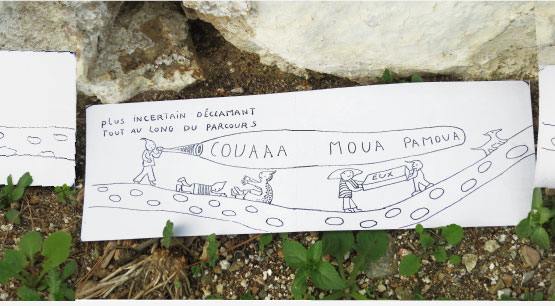 PLUS INCERTAIN DÉCLAMANT
TOUT AU LONG DU PARCOURS
COUAAA MOUA PAMOUA
EUX